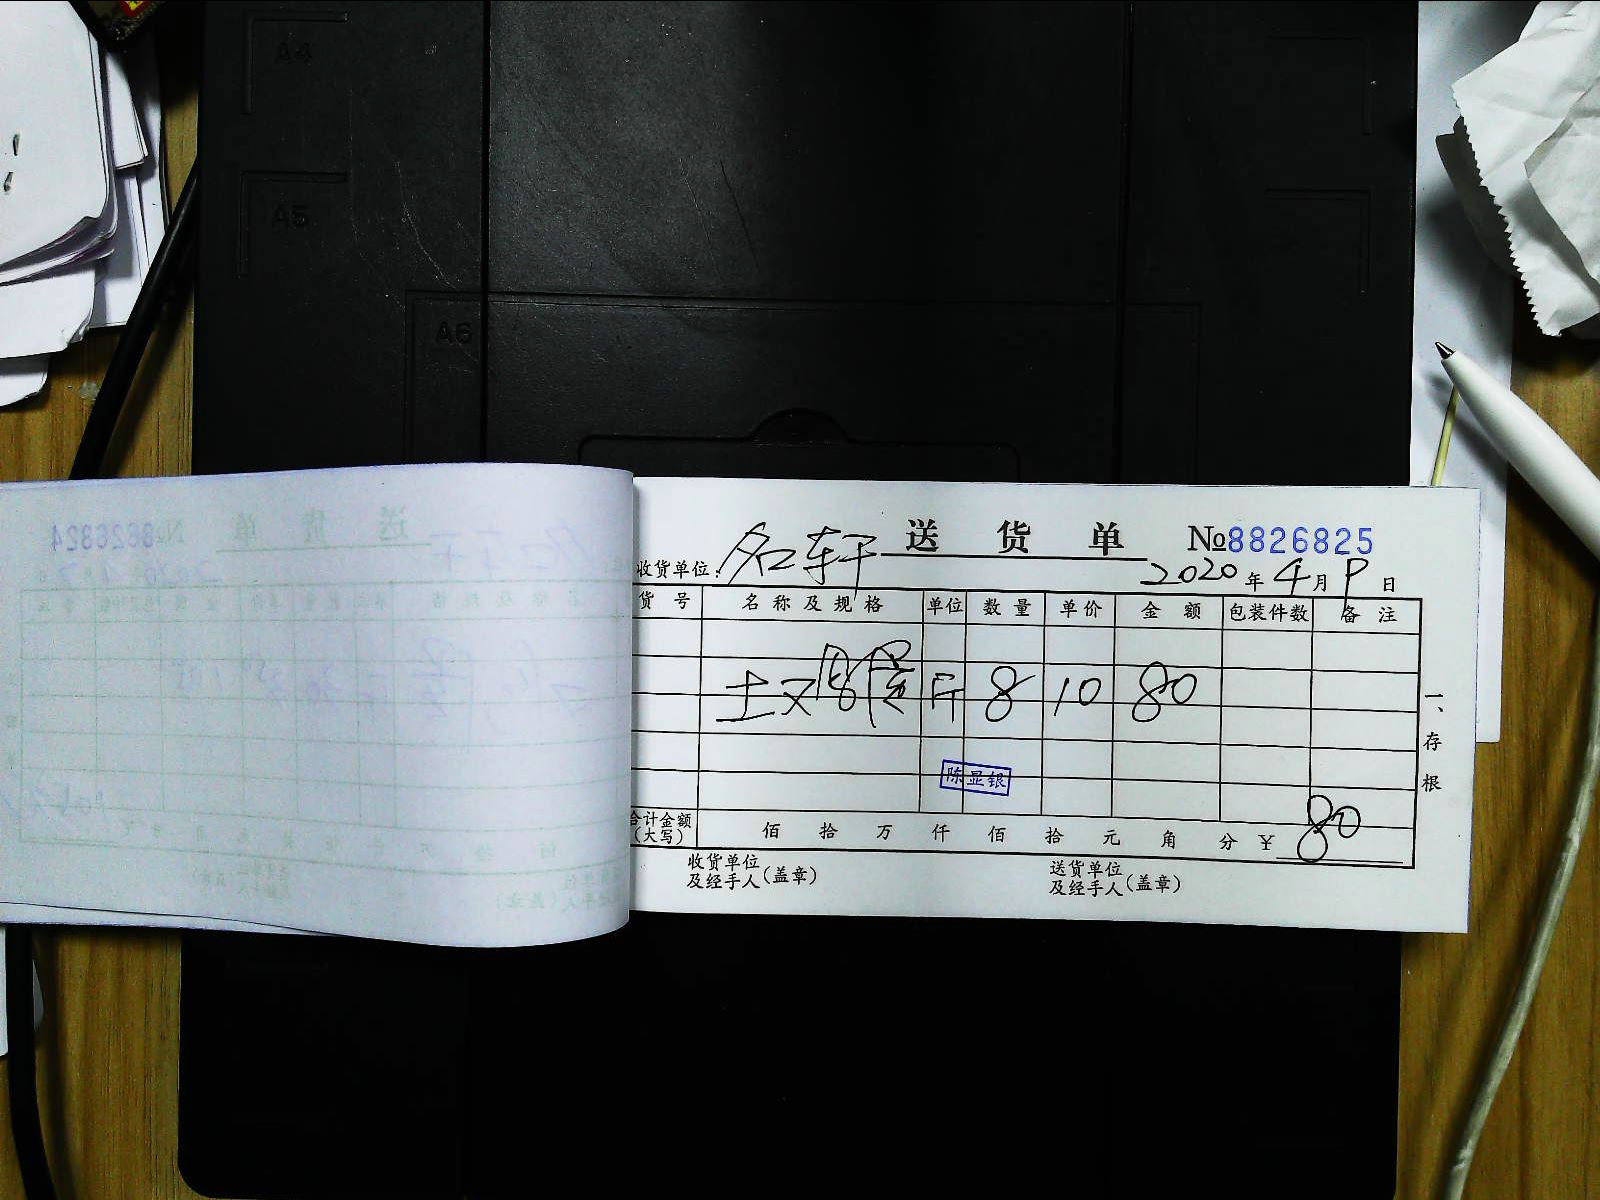 A4
A5
A6
送货单 №8826825
收货单位：名轩
2020年4月9日
货号 名称及规格 单位 数量 单价 金额 包装件数 备注
斤 8 10 80
陈显银
合计金额（大写） 佰 拾 万 仟 佰 拾 元 角 分 ¥ 80
收货单位及经手人（盖章）
送货单位及经手人（盖章）
一、存根
送货单 №8826824